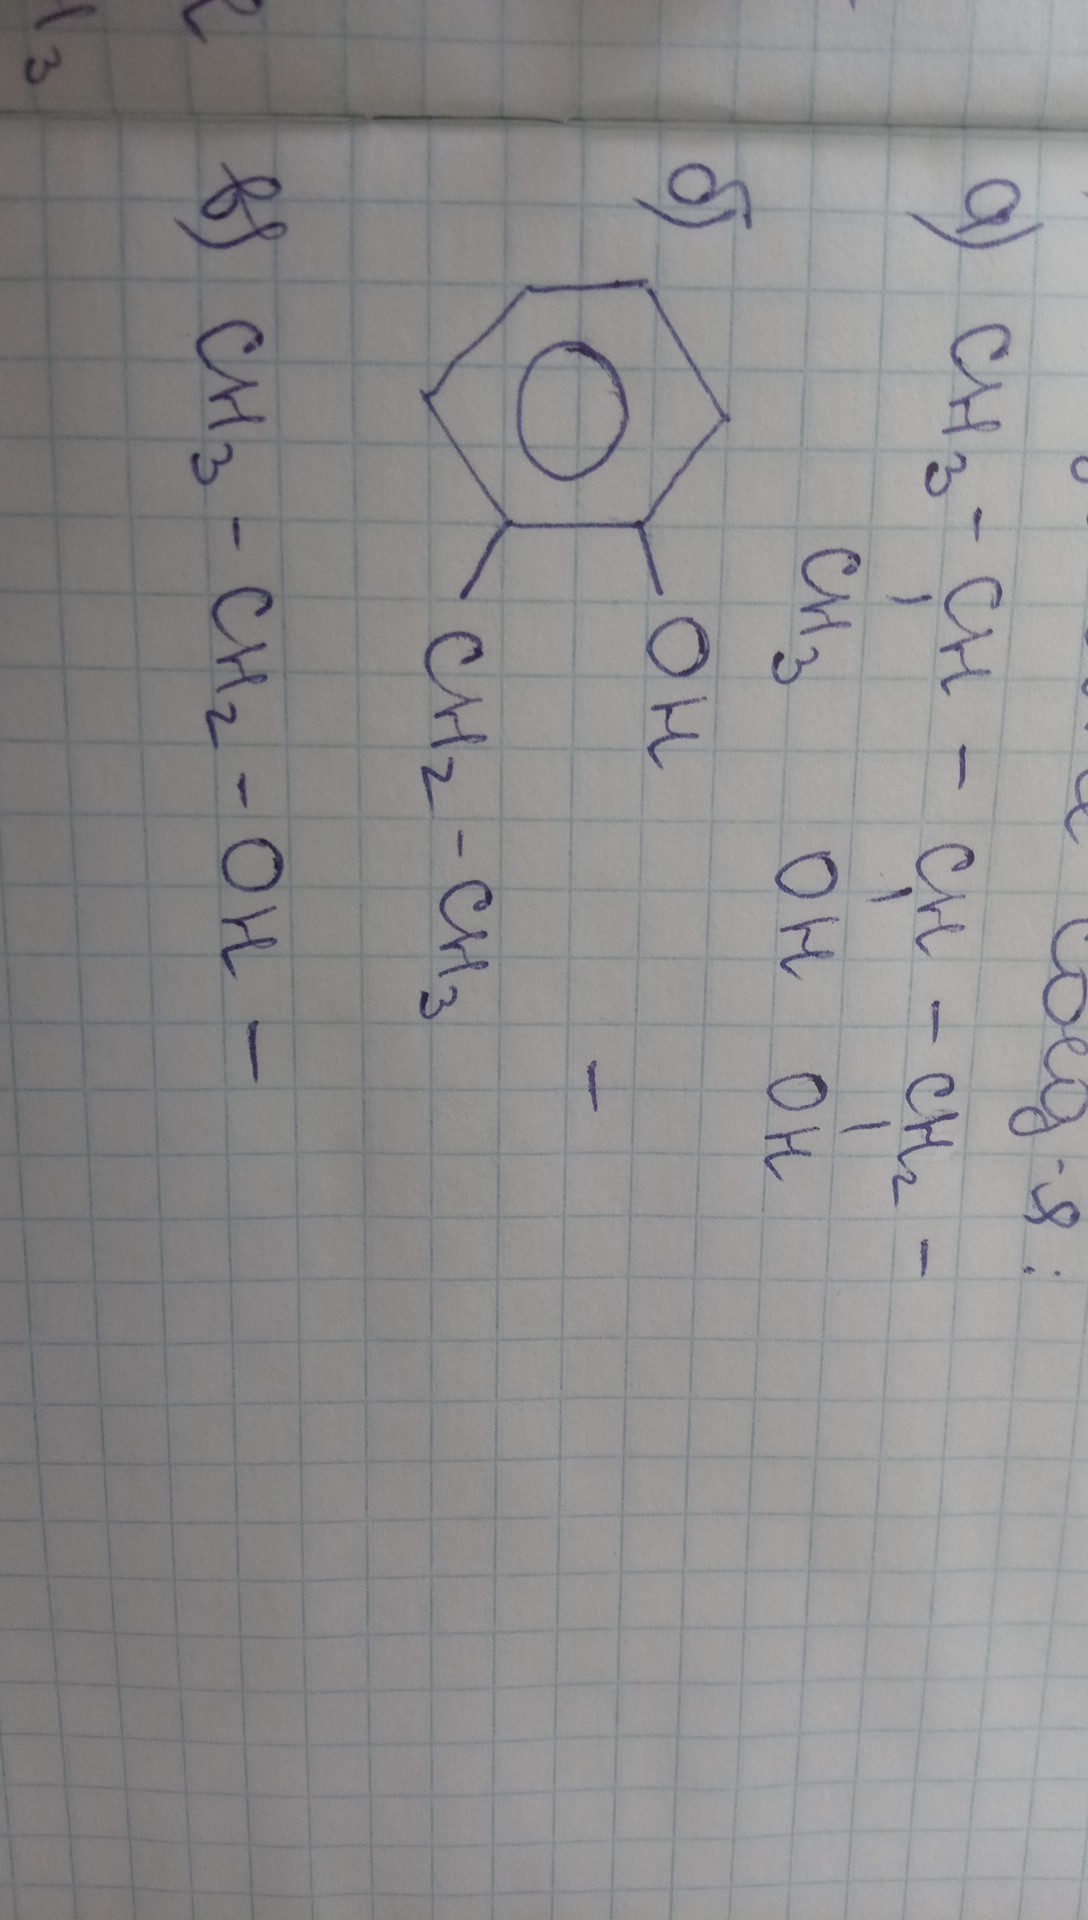 соед-я:
а) CH3 - CH - CH - CH2 -
CH3 OH OH
б) OH
-
CH2 - CH3
в) CH3 - CH2 - OH -